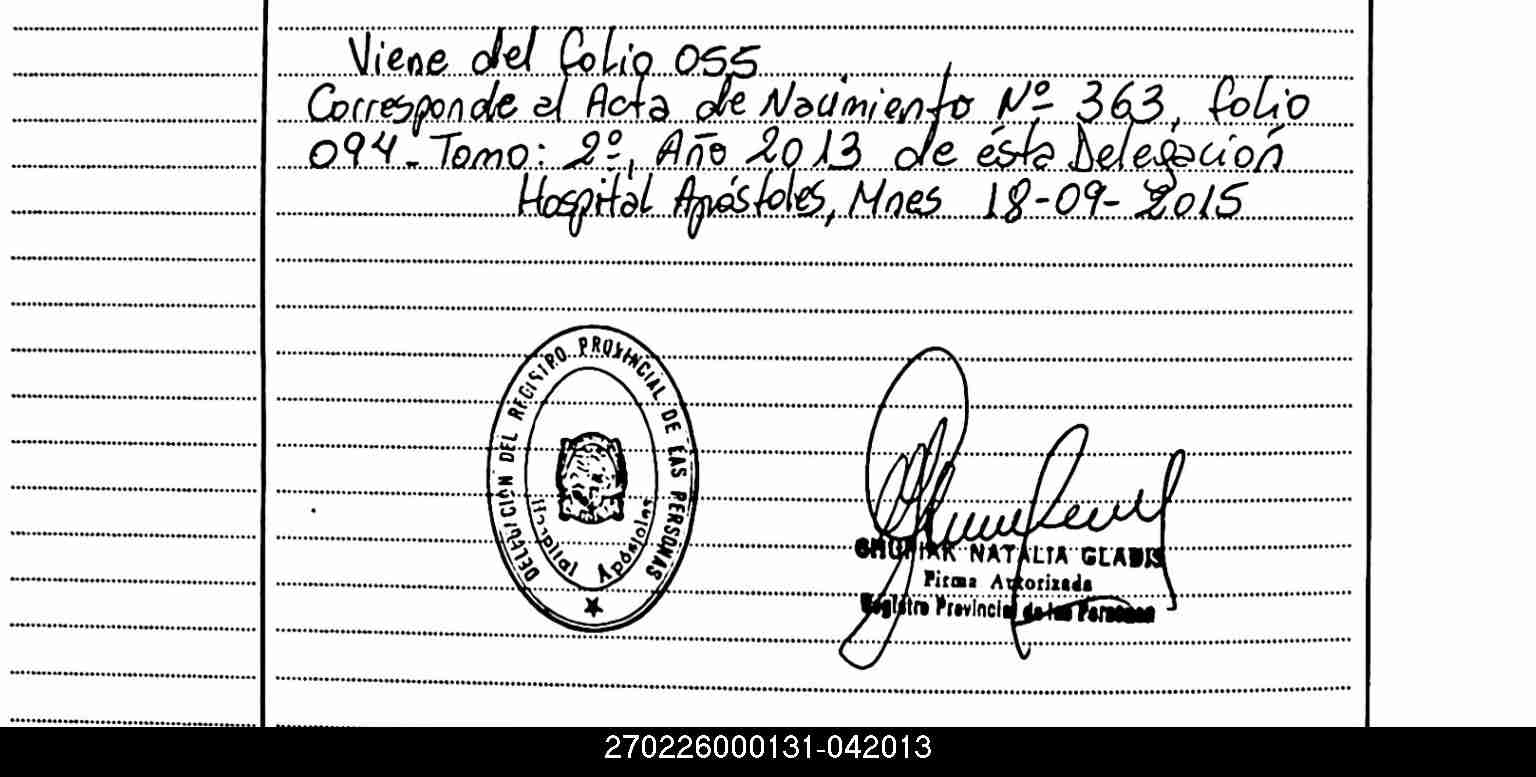 Viene del folio 055
Corresponde al Acta de Nacimiento Nº 363, folio
094- Tomo: 2º, Año 2013 de ésta Delegación
Hospital Apóstoles, Mnes 18-09-2015
DELEGACIÓN DEL REGISTRO PROVINCIAL DE LAS PERSONAS
Hospital Apóstoles
NATALIA GLADIS
Firma Autorizada
Registro Provincial de las Personas
270226000131-042013